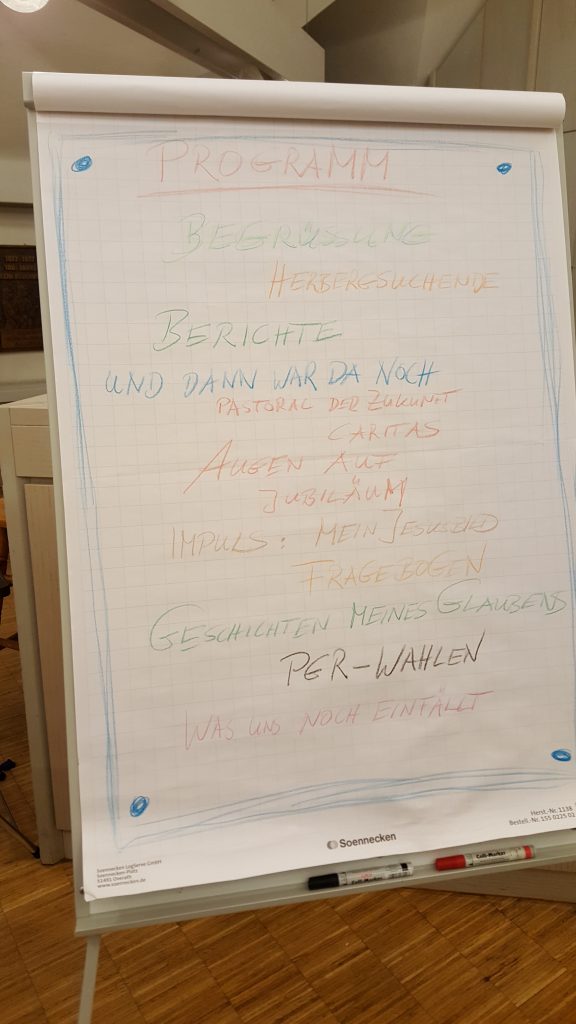 PROGRAMM
BEGRÜSSUNG
HERBERGSUCHENDE
BERICHTE
UND DANN WAR DA NOCH
PASTORAL DER ZUKUNFT
CARITAS
AUGEN AUF
JUBILÄUM
IMPULS: MEIN JESUSBILD
FRAGEBOGEN
GESCHICHTEN MEINES GLAUBENS
PGR-WAHLEN
WAS UNS NOCH EINFÄLLT
Soennecken
Herst.-Nr. 1138
Bestell.-Nr. 155 0225 02
Soennecken LogServe GmbH
Soennecken-Platz
51491 Overath
www.soennecken.de